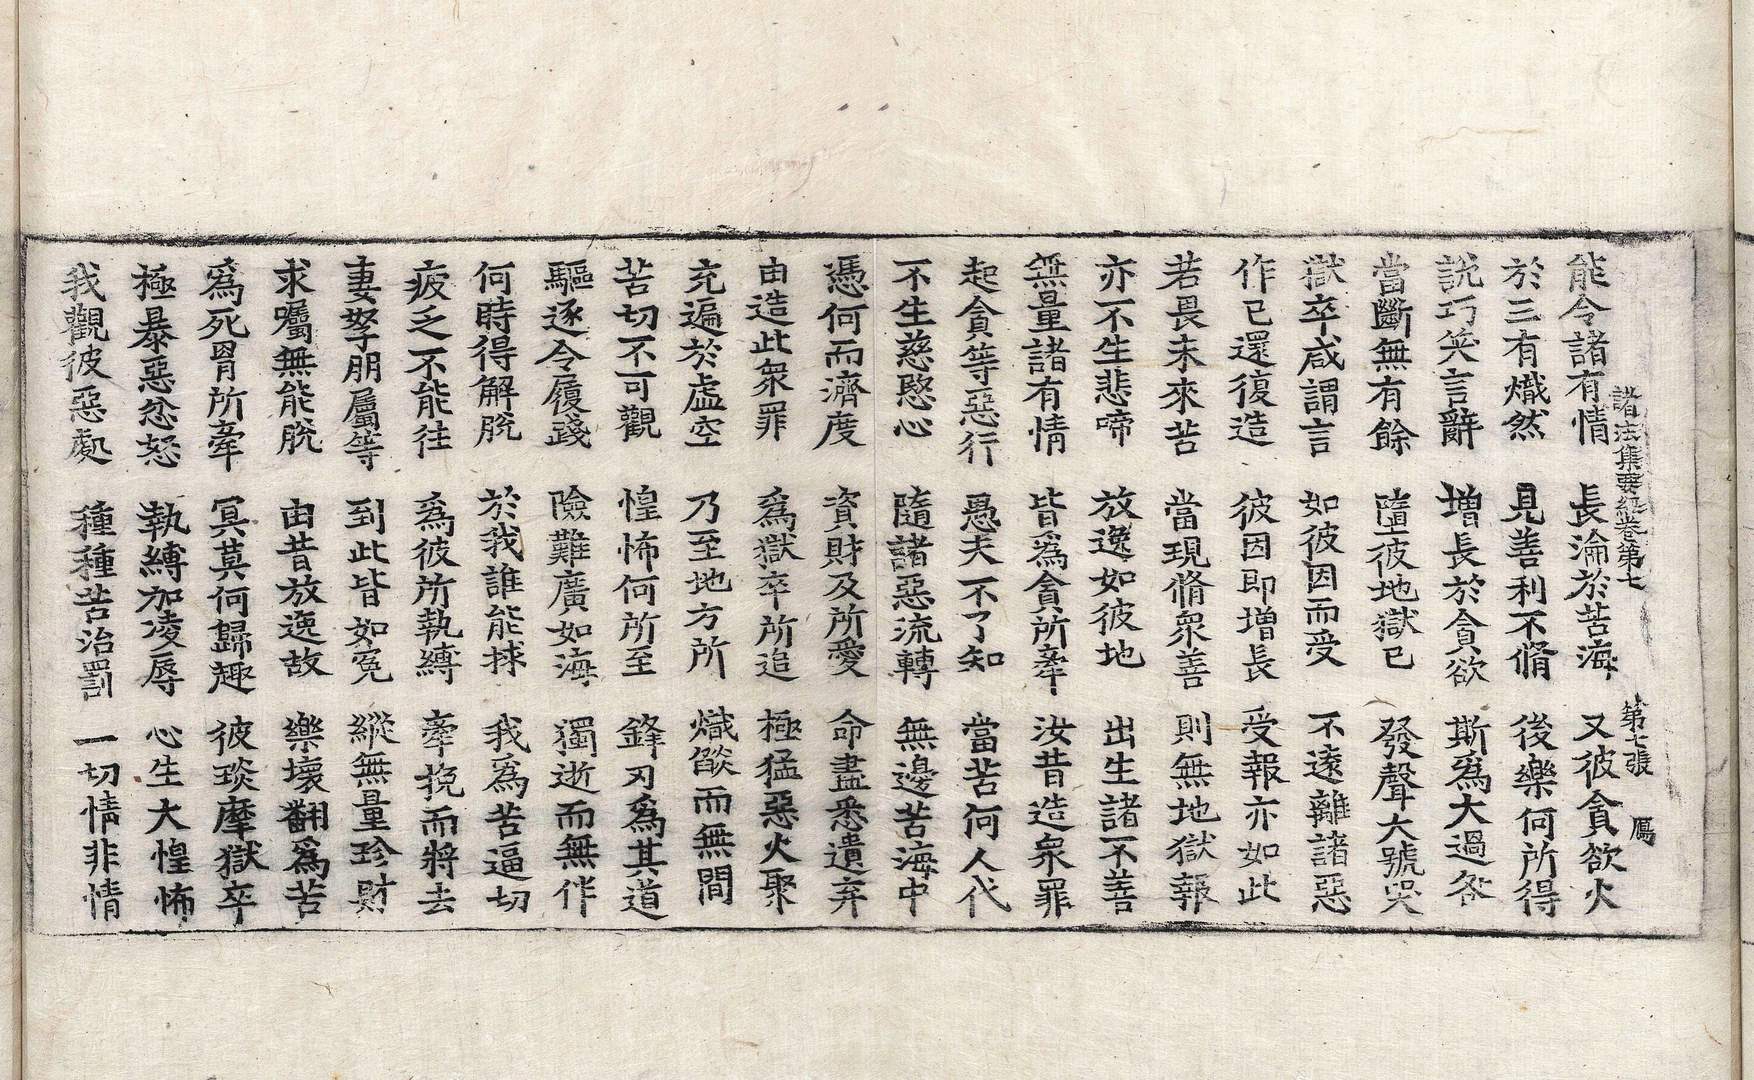 諸法集要經卷第七　第七張　鴈
能令諸有情　長淪於苦海　又彼貪欲火
於三有熾然　見善利不脩　後樂何所得
説巧笶言辭　增長於貪欲　斯爲大過咎
當斷無有餘　墮彼地獄已　發聲大號哭
獄卒咸謂言　如彼因而受　不遠離諸惡
作已還復造　彼因即增長　受報亦如此
若畏未來苦　當現脩衆善　則無地獄報
亦不生悲啼　放逸如彼地　出生諸不善
無量諸有情　皆爲貪所牽　汝昔造衆罪
起貪等惡行　愚夫不了知　當苦何人代
不生慈愍心　隨諸惡流轉　無邊苦海中
憑何而濟度　資財及所愛　命盡悉遺弃
由造此衆罪　爲獄卒所追　極猛惡火聚
充遍於虛空　乃至地方所　熾燄而無間
苦切不可觀　惶怖何所至　鋒刃爲其道
驅逐令履踐　險難廣如海　獨逝而無伴
何時得解脫　於我誰能捄　我爲苦逼切
疲乏不能往　爲彼所執縛　牽挽而將去
妻孥朋屬等　到此皆如冤　縱無量珍財
求囑無能脫　由昔放逸故　樂壞翻爲苦
爲死罥所牽　冥莫何歸趣　彼琰摩獄卒
極暴惡忿怒　執縛加凌辱　心生大惶怖
我觀彼惡處　種種苦治罰　一切情非情